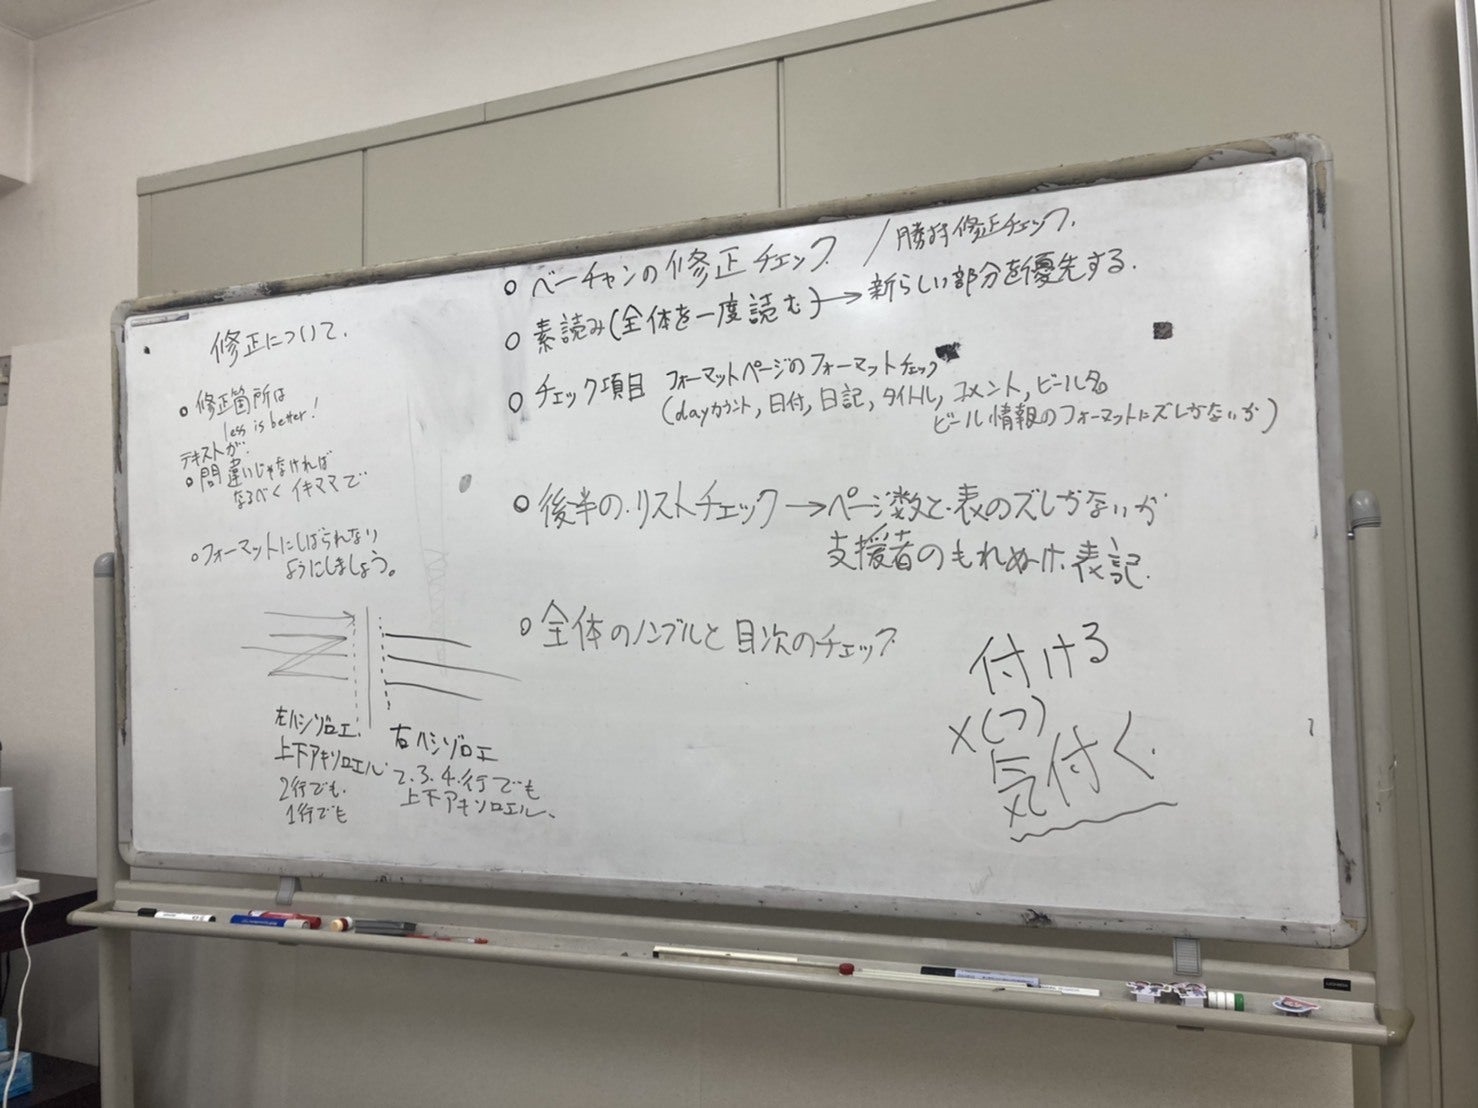 修正について.
○ 修正箇所は
less is better!
テキストが.
○ 間違いじゃなければ
なるべく イキママで
○ フォーマットにしばられない
ようにしましょう。
左ハシゾロエ.
上下アキソロエル.
2行でも.
1行でも
右ハシゾロエ
2.3.4.行でも
上下アキソロエル、
○ ベーチャンの修正チェック / 勝持修正チェック.
○ 素読み(全体を一度読む) → 新らしい部分を優先する.
○ チェック項目 フォーマットページのフォーマットチェック
(dayカウント, 日付, 日記, タイトル, コメント, ビール名
ビール情報のフォーマットにズレがないか)
○ 後半の.リストチェック → ページ数と.表のズレがないか
支援者のもれぬけ.表記.
○ 全体のノンブルと目次のチェック
付ける
×(づ)
気付く.